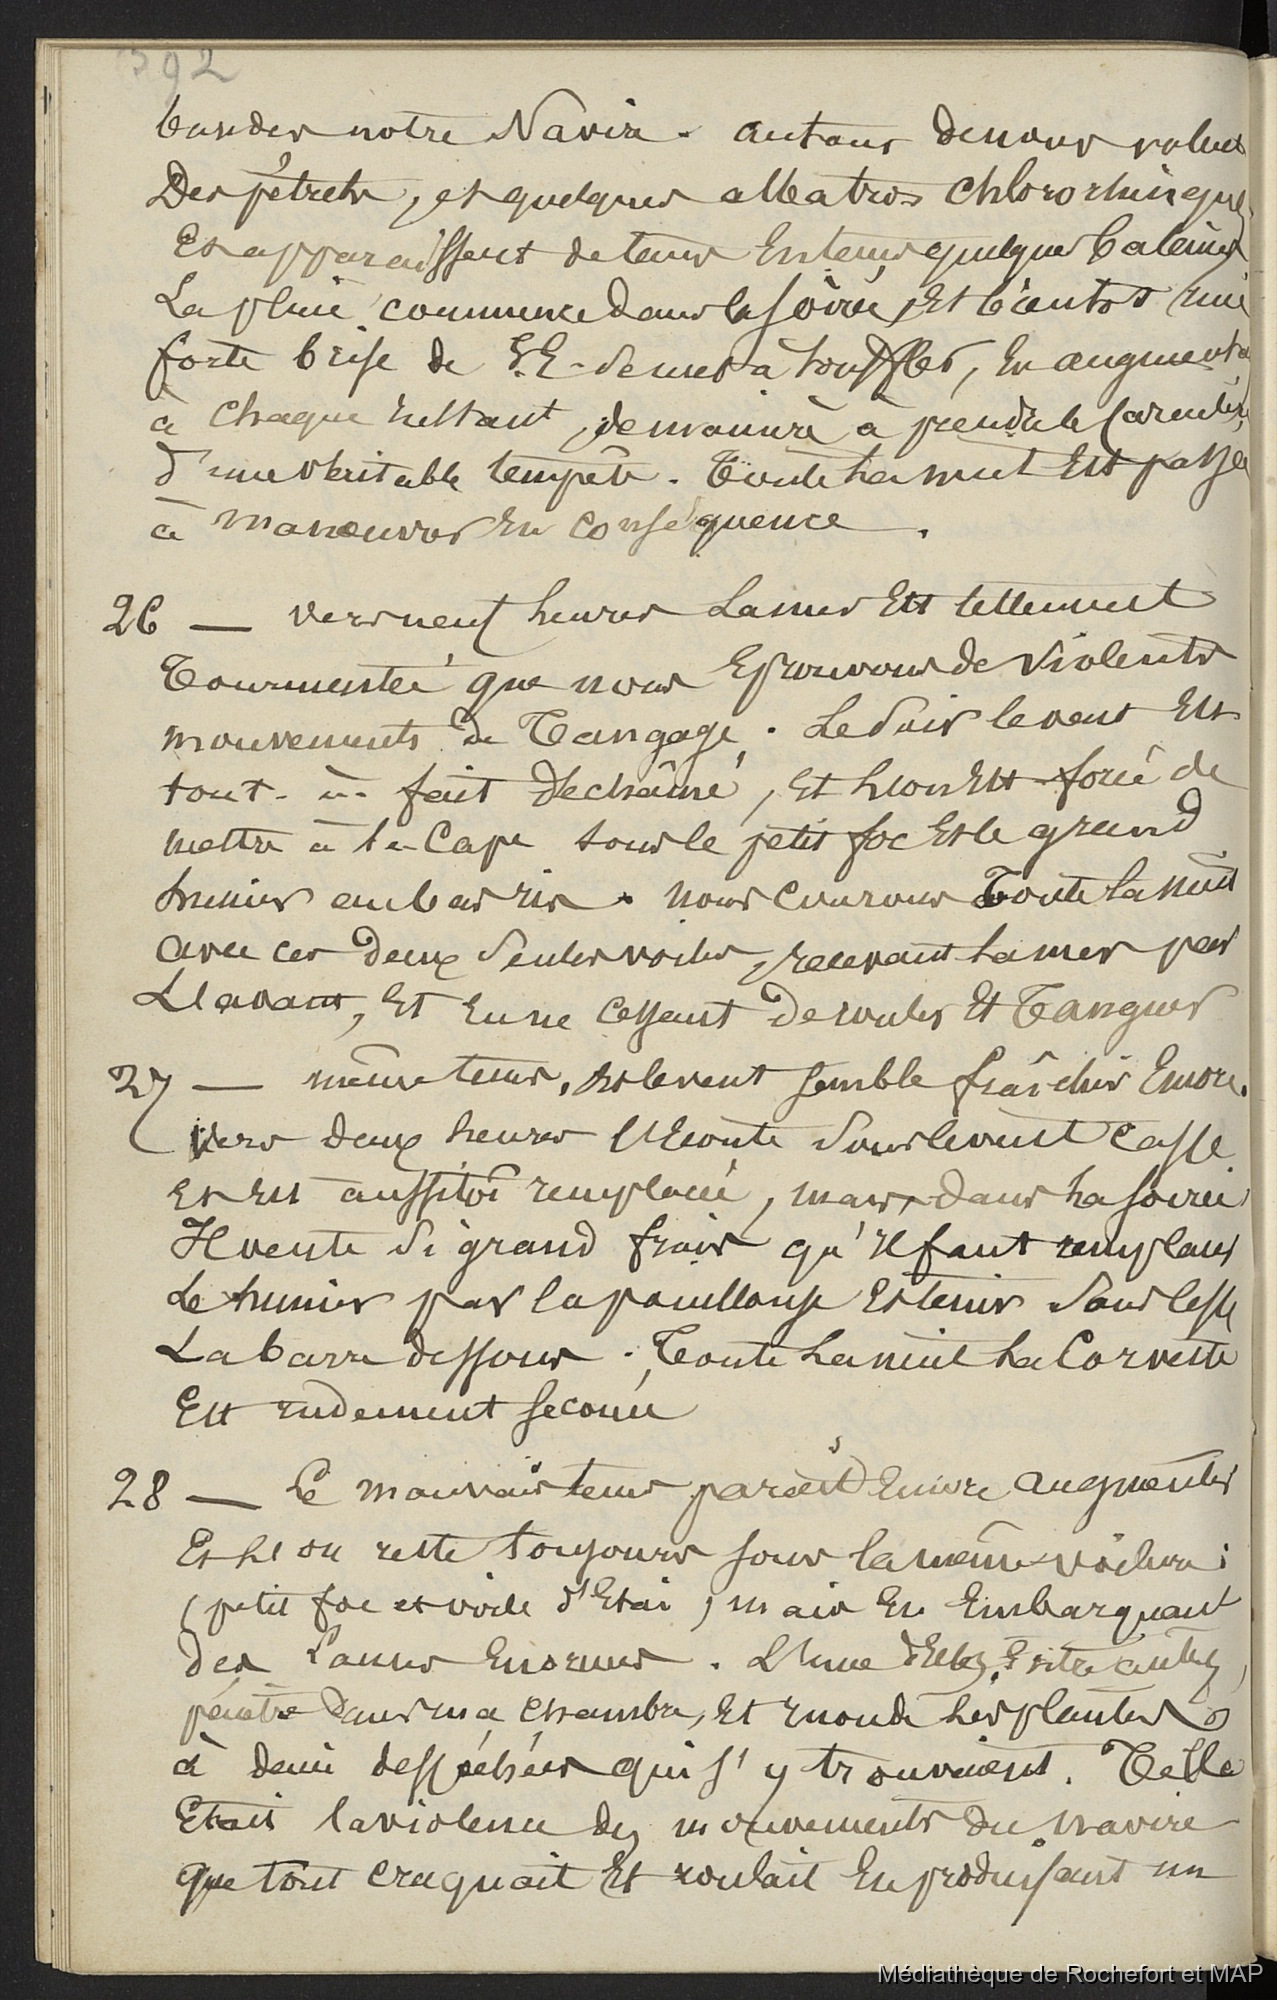 392
notre Navire. autour de nous volent
Des pétrels, et quelques albatros chlororhinques
Et apparaissent de tems En tems quelques baleines
La pluie commence dans la soirée, Et bientôt une
forte brise de S.E. se met à souffler, En augmentant
à chaque instant, de manière à prendre le caractère
d'une véritable tempête. Toute la nuit Est passée
à manoeuvrer En conséquence.
26 — vers neuf heures La mer Est tellement
Tourmentée que nous Eprouvons de violents
mouvements de Tangage. Le soir le vent Est
tout-à-fait déchaîné, Et l'on Est forcé de
mettre à la Cape sous le petit foc Et le grand
hunier au bas ris. nous courons Toute la nuit
avec ces deux seules voiles, recevant la mer par
L'avant, Et En ne cessant de rouler Et Tanguer
27 — même tems, le vent semble fraîchir Encore.
Vers deux heures l'Ecoute sous le vent casse
Et Est aussitôt remplacée, mais dans la soirée
Il vente si grand frais qu'il faut remplacer
Le hunier par la pouillouse Et tenir sans cesse
La barre dessous. Toute la nuit la Corvette
Est rudement secouée
28 — Le mauvais tems paraît Encore augmenter
Et l'on reste toujours sous la même voilure :
(petit foc et voile d'Etai) mais En Embarquant
des Lames Enormes. L'une d'Elles, Entre autres,
pénètre dans ma chambre, Et inonde les plantes
à demi desséchées qui s'y trouvaient. Telle
Etait la violence des mouvements du navire
que tout craquait Et roulait En produisant un
Médiathèque de Rochefort et MAP